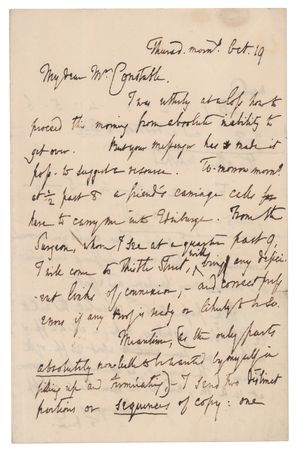 Thursd. morng. Oct. 19
My dear Mr. Constable,
I was utterly at a loss how to
proceed this morning from absolute inability to
get over. But your messenger has made it
poss. to suggest a resource. To-morrow morng.
at ½ past 8 a friend's carriage calls for
here to carry me into Edinburgh. From the
Surgeon, whom I see at a quarter past 9,
I will come to Thistle Street, bring any defici-
ent links of connexion, – and correct press
errors if any Proof is ready or likely to be so.
Meantime, (as the only parts
absolutely to be wanted by myself in
filling up and terminating) – I send two distinct
portions or sequences of copy: one